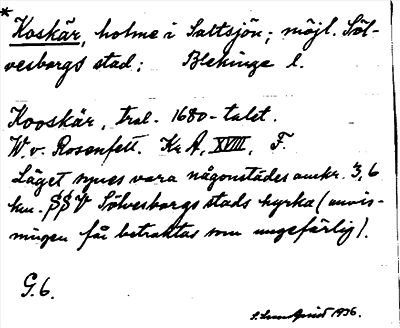 * Koskär, holme i Saltsjön; möjl. Söl-
vesborgs stad; Blekinge l.
Kooskär, trol. 1680-talet.
W. v. Rosenfelt. Kr A, XVIII, F.
Läget synes vara någonstädes omkr. 3,6
km. SSV Sölvesborgs stads kyrka (anvis-
ningen får betraktas som ungefärlig).
G. 6.
1936.